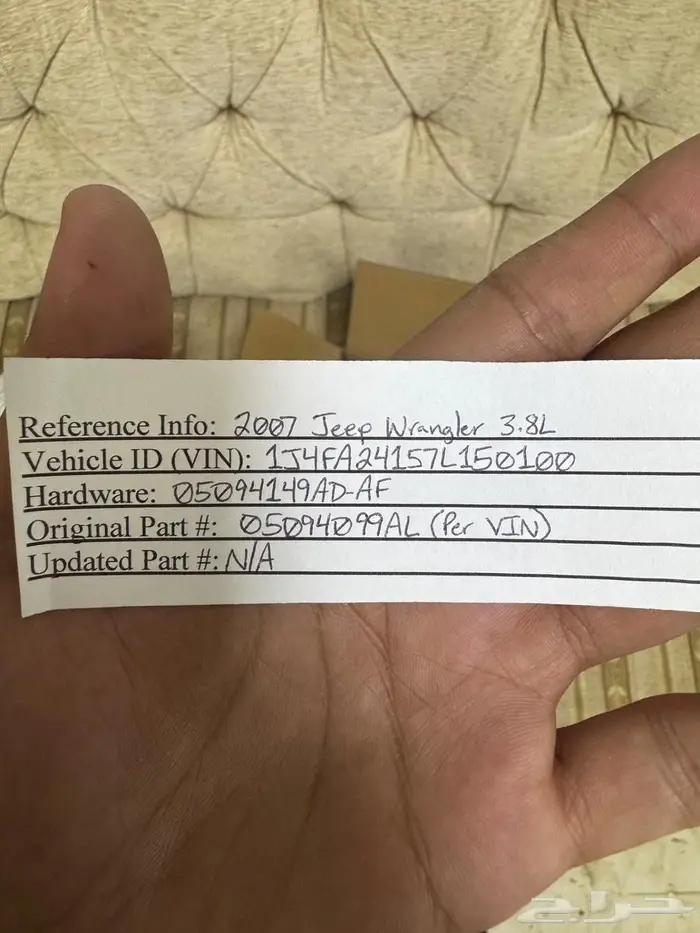 Reference Info: 2007 Jeep Wrangler 3.8L
Vehicle ID (VIN): 1J4FA24157L150100
Hardware: 05094149AD-AF
Original Part #: 05094099AL (Per VIN)
Updated Part #: N/A
حراج